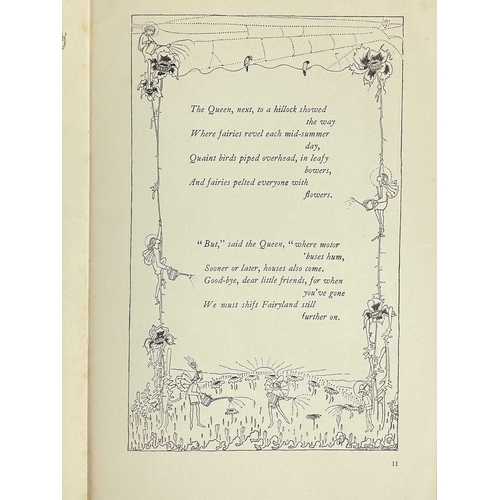 The Queen, next, to a hillock showed
the way
Where fairies revel each mid-summer
day,
Quaint birds piped overhead, in leafy
bowers,
And fairies pelted everyone with
flowers.
"But," said the Queen, "where motor
'buses hum,
Sooner or later, houses also come.
Good-bye, dear little friends, for when
you've gone
We must shift Fairyland still
further on.
11